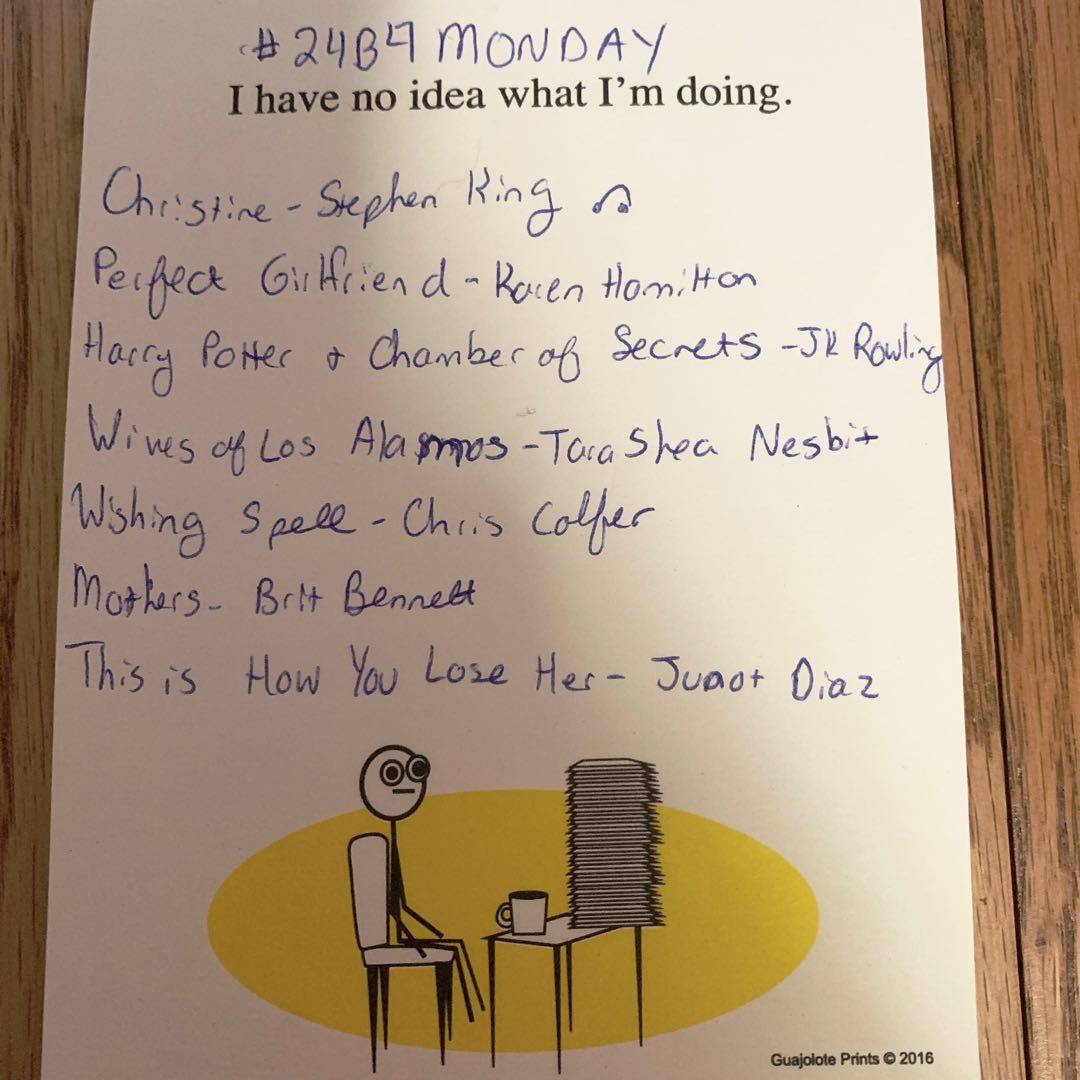 #24B4 MONDAY
I have no idea what I'm doing.
Christine - Stephen King
Perfect Girlfriend - Karen Hamilton
Harry Potter + Chamber of Secrets - JK Rowling
Wives of Los Alamos - Tara Shea Nesbit
Wishing Spell - Chris Colfer
Mothers - Brit Bennett
This is How You Lose Her - Junot Diaz
Guajolote Prints © 2016